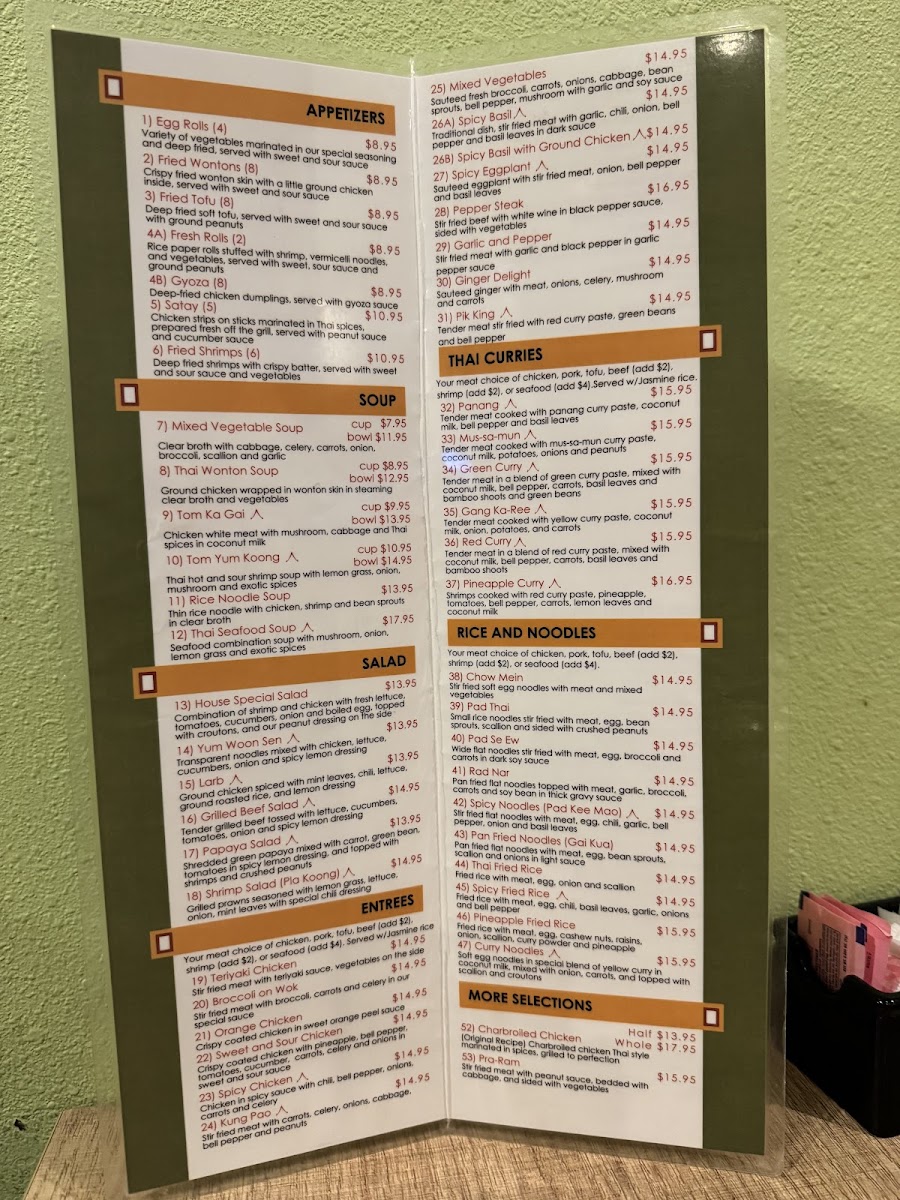 APPETIZERS
1) Egg Rolls (4)
$8.95
Variety of vegetables marinated in our special seasoning
and deep fried, served with sweet and sour sauce
2) Fried Wontons (8)
$8.95
Crispy fried wonton skin with a little ground chicken
inside, served with sweet and sour sauce
3) Fried Tofu (8)
$8.95
Deep fried soft tofu, served with sweet and sour sauce
with ground peanuts
4A) Fresh Rolls (2)
$8.95
Rice paper rolls stuffed with shrimp, vermicelli noodles,
and vegetables, served with sweet, sour sauce and
ground peanuts
4B) Gyoza (8)
$8.95
Deep-fried chicken dumplings, served with gyoza sauce
5) Satay (5)
$10.95
Chicken strips on sticks marinated in Thai spices,
prepared fresh off the grill, served with peanut sauce
and cucumber sauce
6) Fried Shrimps (6)
$10.95
Deep fried shrimps with crispy batter, served with sweet
and sour sauce and vegetables
SOUP
7) Mixed Vegetable Soup
cup $7.95
bowl $11.95
Clear broth with cabbage, celery, carrots, onion,
broccoli, scallion and garlic
8) Thai Wonton Soup
cup $8.95
bowl $12.95
Ground chicken wrapped in wonton skin in steaming
clear broth and vegetables
9) Tom Ka Gai
cup $9.95
bowl $13.95
Chicken white meat with mushroom, cabbage and Thai
spices in coconut milk
10) Tom Yum Koong
cup $10.95
bowl $14.95
Thai hot and sour shrimp soup with lemon grass, onion,
mushroom and exotic spices
11) Rice Noodle Soup
$13.95
Thin rice noodle with chicken, shrimp and bean sprouts
in clear broth
12) Thai Seafood Soup
$17.95
Seafood combination soup with mushroom, onion,
lemon grass and exotic spices
SALAD
13) House Special Salad
$13.95
Combination of shrimp and chicken with fresh lettuce,
tomatoes, cucumbers, onion and boiled egg, topped
with croutons, and our peanut dressing on the side
14) Yum Woon Sen
$13.95
Transparent noodles mixed with chicken, lettuce,
cucumbers, onion and spicy lemon dressing
15) Larb
$13.95
Ground chicken spiced with mint leaves, chili, lettuce,
ground roasted rice, and lemon dressing
16) Grilled Beef Salad
$14.95
Tender grilled beef tossed with lettuce, cucumbers,
tomatoes, onion and spicy lemon dressing
17) Papaya Salad
$13.95
Shredded green papaya mixed with carrot, green bean,
tomatoes in spicy lemon dressing, and topped with
shrimps and crushed peanuts
18) Shrimp Salad (Pla Koong)
$14.95
Grilled prawns seasoned with lemon grass, lettuce,
onion, mint leaves with special chili dressing
ENTREES
Your meat choice of chicken, pork, tofu, beef (add $2),
shrimp (add $2), or seafood (add $4). Served w/Jasmine rice
19) Teriyaki Chicken
$14.95
Stir fried meat with teriyaki sauce, vegetables on the side
20) Broccoli on Wok
$14.95
Stir fried meat with broccoli, carrots and celery in our
special sauce
21) Orange Chicken
$14.95
Crispy coated chicken in sweet orange peel sauce
22) Sweet and Sour Chicken
$14.95
Crispy coated chicken with pineapple, bell pepper,
tomatoes, cucumber, carrots, celery and onions in
sweet and sour sauce
23) Spicy Chicken
$14.95
Chicken in spicy sauce with chili, bell pepper, onions,
carrots and celery
24) Kung Pao
$14.95
Stir fried meat with carrots, celery, onions, cabbage,
bell pepper and peanuts
25) Mixed Vegetables
$14.95
Sauteed fresh broccoli, carrots, onions, cabbage, bean
sprouts, bell pepper, mushroom with garlic and soy sauce
26A) Spicy Basil
$14.95
Traditional dish, stir fried meat with garlic, chili, onion, bell
pepper and basil leaves in dark sauce
26B) Spicy Basil with Ground Chicken $14.95
27) Spicy Eggplant
$14.95
Sauteed eggplant with stir fried meat, onion, bell pepper
and basil leaves
28) Pepper Steak
$16.95
Stir fried beef with white wine in black pepper sauce,
sided with vegetables
29) Garlic and Pepper
$14.95
Stir fried meat with garlic and black pepper in garlic
pepper sauce
30) Ginger Delight
$14.95
Sauteed ginger with meat, onions, celery, mushroom
and carrots
31) Pik King
$14.95
Tender meat stir fried with red curry paste, green beans
and bell pepper
THAI CURRIES
Your meat choice of chicken, pork, tofu, beef (add $2),
shrimp (add $2), or seafood (add $4).Served w/Jasmine rice.
32) Panang
$15.95
Tender meat cooked with panang curry paste, coconut
milk, bell pepper and basil leaves
33) Mus-sa-mun
$15.95
Tender meat cooked with mus-sa-mun curry paste,
coconut milk, potatoes, onions and peanuts
34) Green Curry
$15.95
Tender meat in a blend of green curry paste, mixed with
coconut milk, bell pepper, carrots, basil leaves and
bamboo shoots and green beans
35) Gang Ka-Ree
$15.95
Tender meat cooked with yellow curry paste, coconut
milk, onion, potatoes, and carrots
36) Red Curry
$15.95
Tender meat in a blend of red curry paste, mixed with
coconut milk, bell pepper, carrots, basil leaves and
bamboo shoots
37) Pineapple Curry
$16.95
Shrimps cooked with red curry paste, pineapple,
tomatoes, bell pepper, carrots, lemon leaves and
coconut milk
RICE AND NOODLES
Your meat choice of chicken, pork, tofu, beef (add $2),
shrimp (add $2), or seafood (add $4).
38) Chow Mein
$14.95
Stir fried soft egg noodles with meat and mixed
vegetables
39) Pad Thai
$14.95
Small rice noodles stir fried with meat, egg, bean
sprouts, scallion and sided with crushed peanuts
40) Pad Se Ew
$14.95
Wide flat noodles stir fried with meat, egg, broccoli and
carrots in dark soy sauce
41) Rad Nar
$14.95
Pan fried flat noodles topped with meat, garlic, broccoli,
carrots and soy bean in thick gravy sauce
42) Spicy Noodles (Pad Kee Mao)
$14.95
Stir fried flat noodles with meat, egg, chili, garlic, bell
pepper, onion and basil leaves
43) Pan Fried Noodles (Gai Kua)
$14.95
Pan fried flat noodles with meat, egg, bean sprouts,
scallion and onions in light sauce
44) Thai Fried Rice
$14.95
Fried rice with meat, egg, onion and scallion
45) Spicy Fried Rice
$14.95
Fried rice with meat, egg, chili, basil leaves, garlic, onions
and bell pepper
46) Pineapple Fried Rice
$15.95
Fried rice with meat, egg, cashew nuts, raisins,
onion, scallion, curry powder and pineapple
47) Curry Noodles
$15.95
Soft egg noodles in special blend of yellow curry in
coconut milk, mixed with onion, carrots, and topped with
scallion and croutons
MORE SELECTIONS
52) Charbroiled Chicken
Half $13.95
Whole $17.95
(Original Recipe) Charbroiled chicken Thai style
marinated in spices, grilled to perfection
53) Pra-Ram
$15.95
Stir fried meat with peanut sauce, bedded with
cabbage, and sided with vegetables